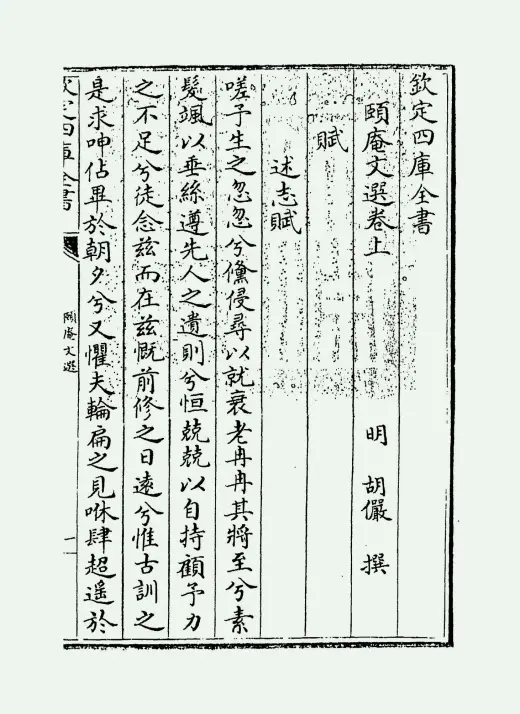 欽定四庫全書
頤庵文選卷上 明 胡儼 撰
賦
述志賦
嗟予生之忽忽兮儵侵尋以就衰老冉冉其將至兮素
髮颯以垂絲遵先人之遺則兮恒兢兢以自持顧予力
之不足兮徒念兹而在兹慨前修之日遠兮惟古訓之
是求呻佔畢於朝夕兮又懼夫輪扁之見咻肆超遥於
欽定四庫全書
頤庵文選
一